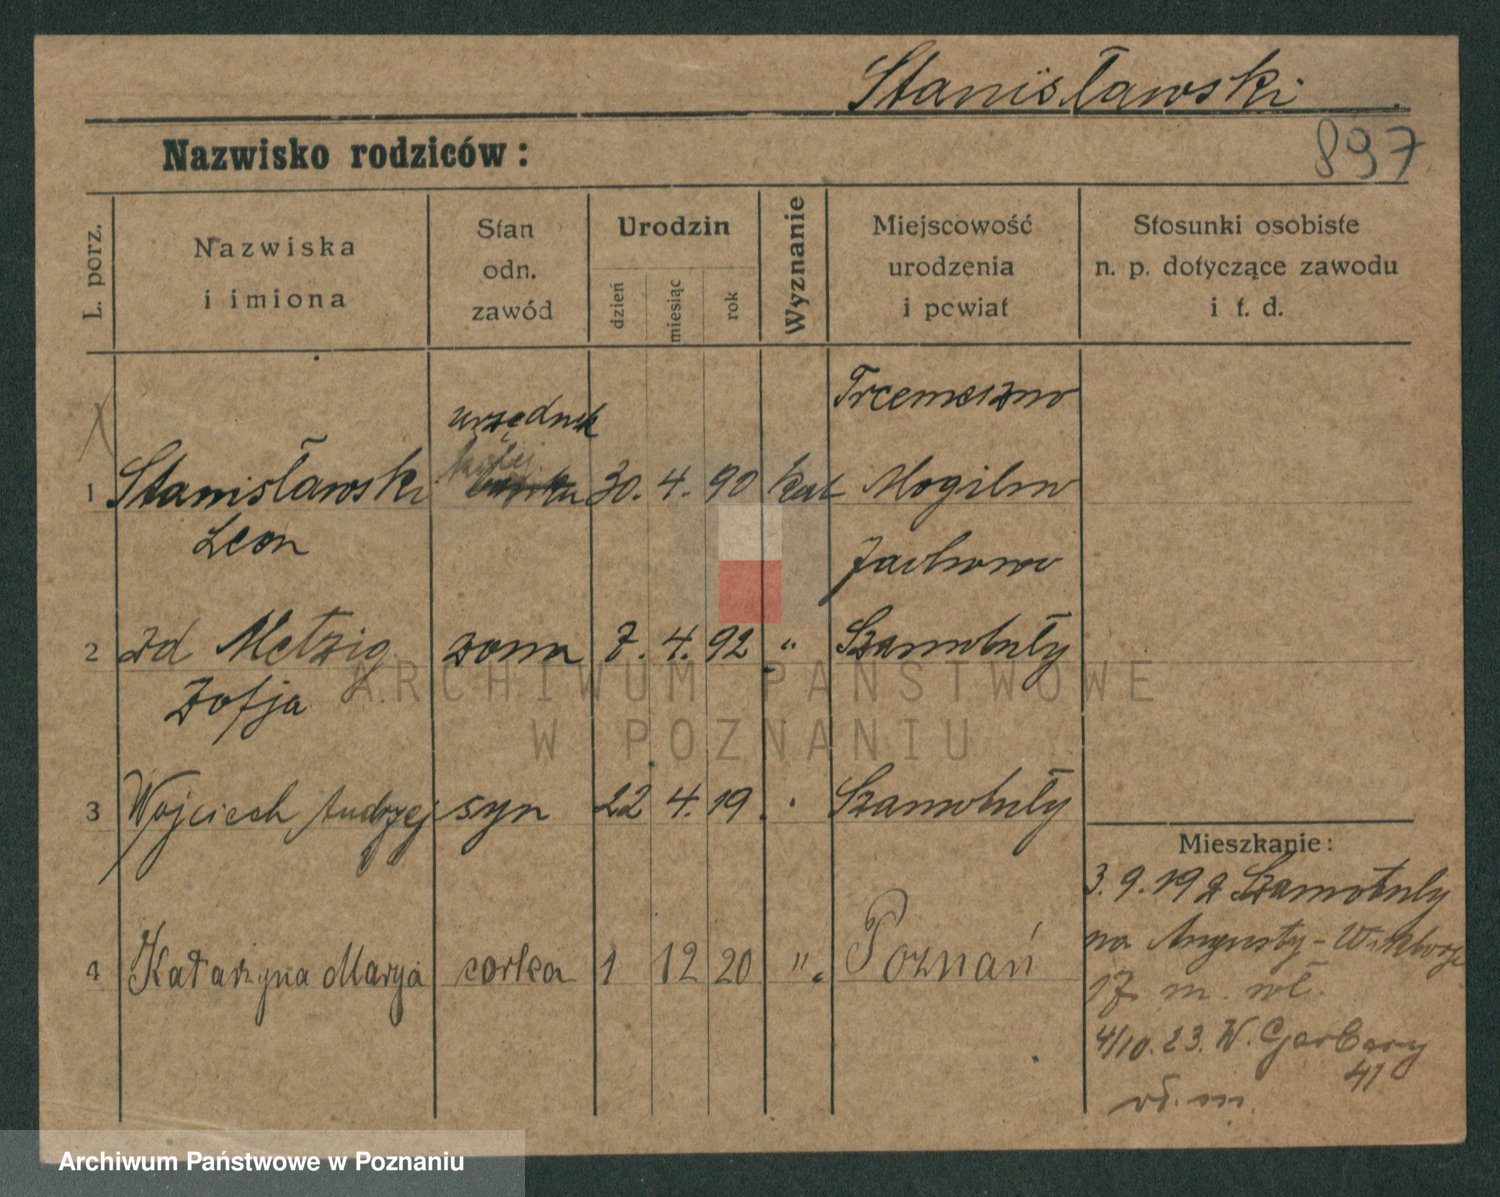 Stanisławski
897
Nazwisko rodziców:
L. porz.
Nazwiska
i imiona
Stan
odn.
zawód
Urodzin
dzień
miesiąc
rok
Wyznanie
Miejscowość
urodzenia
i powiat
Stosunki osobiste
n. p. dotyczące zawodu
i t. d.
1 Stanisławski
Leon
urzędnik
30. 4. 90
kat
Trzemeszno
Mogilno
2 zd Metzig
Zofja
żona
7. 4. 92
"
Szamotuły
3 Wojciech Andrzej
syn
22 4. 19.
Szamotuły
4 Katarzyna Marya
córka
1 12 20
"
Poznań
Mieszkanie:
3. 9. 19 Szamotuły
na Augusty-
17 m. wł.
4/10. 23. W. Garbary
41
wł. m.
ARCHIWUM PAŃSTWOWE
W POZNANIU
Archiwum Państwowe w Poznaniu